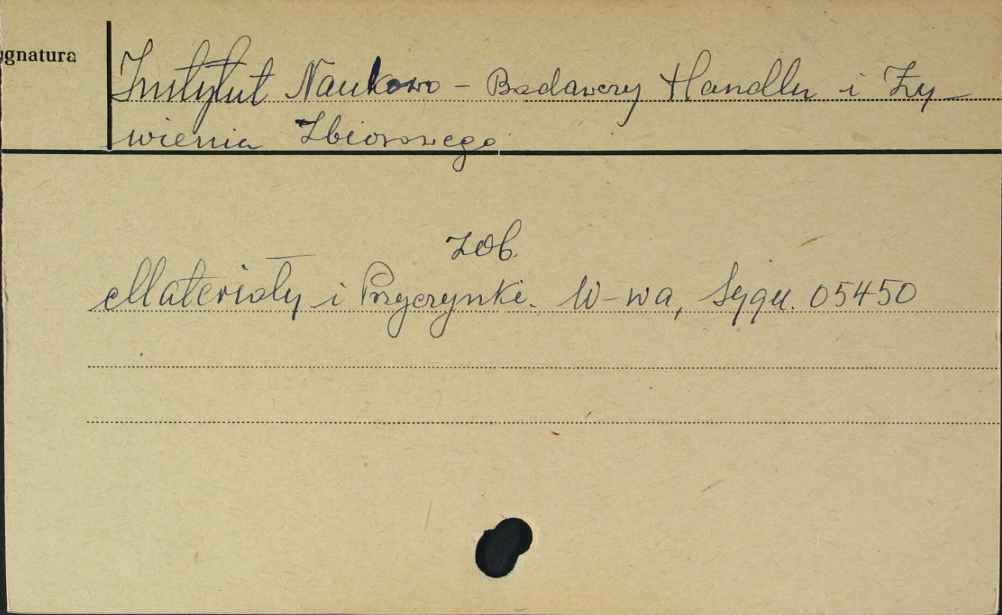 ygnatura
Instytut Naukowo - Badawczy Handlu i Ży-
wienia Zbiorowego
zob.
Materiały i Przyczynki. W-wa, Sygn. 05450